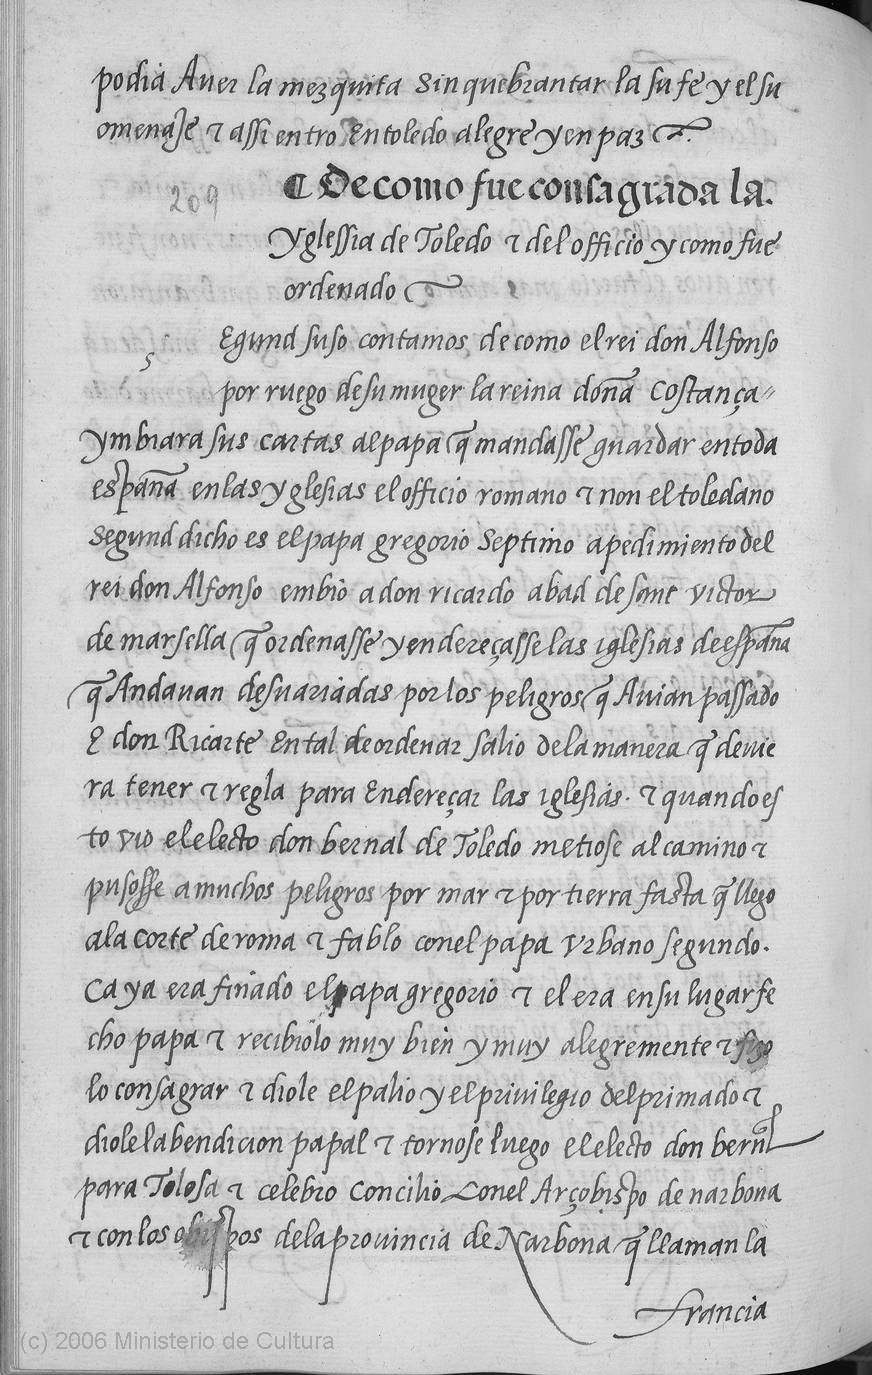 podia Auer la mezquita sin quebrantar la su fe y el su
omenaje τ assi entro En toledo alegre y en paz
209
¶ De como fue consagrada la.
yglessia de Toledo τ del officio y como fue
ordenado
s
Egund suso contamos de como el rei don Alfonso
por ruego de su muger la reina doña Costança
ymbiara sus cartas al papa q̃ mandasse guardar en toda
españa en las yglesias el officio romano τ non el toledano
segund dicho es el papa gregorio septimo a pedimiento del
rei don Alfonso embio a don ricardo abad de sant victor
de marsella q̃ ordenasse y endereçasse las iglesias de españa
q̃ Andauan desuariadas por los peligros q̃ Auian passado
E don Ricarte En tal de ordenar salio de la manera q̃ deuie
ra tener τ regla para Endereçar las iglesias. τ quando es
to vio el electo don bernal de Toledo metiose al camino τ
pusosse a muchos peligros por mar τ por tierra fasta q̃ llego
a la corte de roma τ fablo con el papa vrbano segundo.
Ca ya era finado el papa gregorio τ el era en su lugar fe
cho papa τ recibiolo muy bien y muy alegremente τ fizo
lo consagrar τ diole el palio y el priuilegio del primado τ
diole la bendicion papal τ tornose luego el electo don bernal
para Tolosa τ celebro Concilio Con el Arçobispo de narbona
τ con los obispos de la prouincia de Narbona q̃ llaman la
francia
(c) 2006 Ministerio de Cultura